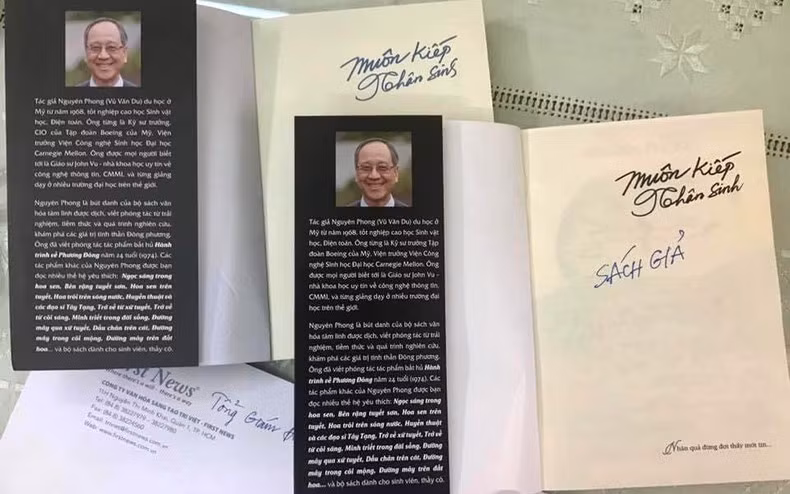 Tác giả Nguyên Phong (Vũ Văn Du) du học ở
Mỹ từ năm 1968, tốt nghiệp cao học Sinh vật
học, Điện toán. Ông từng là Kỹ sư trưởng,
CIO của Tập đoàn Boeing của Mỹ, Viện
trưởng Viện Công nghệ Sinh học Đại học
Carnegie Mellon. Ông được mọi người biết
tới là Giáo sư John Vu - nhà khoa học uy tín về
công nghệ thông tin, CMMI, và từng giảng
dạy ở nhiều trường đại học trên thế giới.
Nguyên Phong là bút danh của bộ sách văn
hóa tâm linh được dịch, viết phóng tác từ trải
nghiệm, tiềm thức và quá trình nghiên cứu,
khám phá các giá trị tinh thần Đông phương.
Ông đã viết phóng tác tác phẩm bất hủ Hành
trình về Phương Đông năm 24 tuổi (1974). Các
tác phẩm khác của Nguyên Phong được bạn
đọc nhiều thế hệ yêu thích: Ngọc sáng trong
hoa sen, Bên rặng tuyết sơn, Hoa sen trên
tuyết, Hoa trôi trên sóng nước, Huyền thuật và
các đạo sĩ Tây Tạng, Trở về từ xứ tuyết, Trở về
từ cõi sáng, Minh triết trong đời sống, Đường
mây qua xứ tuyết, Dấu chân trên cát, Đường
mây trong cõi mộng, Đường mây trên đất
hoa... và bộ sách dành cho sinh viên, thầy cô.
Muôn Kiếp
Nhân Sinh
First News
where there's a will - there's a way
CÔNG TY VĂN HÓA SÁNG TẠO TRÍ VIỆT - FIRST NEWS
11H Nguyễn Thị Minh Khai, Quận 1, TP. HCM
Tel: (84.8) 38227979 - 38227980
Fax: (84.8) 38224560
Web: www.firstnews.com.vn
Tổng Giám
Tác giả Nguyên Phong (Vũ Văn Du) du học ở
Mỹ từ năm 1968, tốt nghiệp cao học Sinh vật
học, Điện toán. Ông từng là Kỹ sư trưởng Tập
đoàn Boeing của Mỹ, Viện trưởng Viện Công
nghệ Sinh học Đại học Carnegie Mellon. Ông
được mọi người biết tới là Giáo sư John Vu -
nhà khoa học uy tín về công nghệ thông tin,
CMMI, và từng giảng dạy ở nhiều trường đại
học trên thế giới.
Nguyên Phong là bút danh của bộ sách văn
hóa tâm linh được dịch, viết phóng tác từ trải
nghiệm, tiềm thức và quá trình nghiên cứu,
khám phá các giá trị tinh thần Đông phương.
Ông đã viết phóng tác tác phẩm bất hủ Hành
trình về Phương Đông năm 24 tuổi (1974). Các
tác phẩm khác của Nguyên Phong được bạn
đọc nhiều thế hệ yêu thích: Ngọc sáng trong
hoa sen, Bên rặng tuyết sơn, Hoa sen trên
tuyết, Hoa trôi trên sóng nước, Huyền thuật
và các đạo sĩ Tây Tạng, Trở về từ xứ tuyết, Trở về
từ cõi sáng, Minh triết trong đời sống, Đường
mây qua xứ tuyết, Dấu chân trên cát, Đường
mây trong cõi mộng, Đường mây trên đất
hoa... và bộ sách dành cho sinh viên, thầy cô.
Muôn Kiếp
Nhân Sinh
SÁCH GIẢ
Nhân quả đừng đợi thấy mới tin...